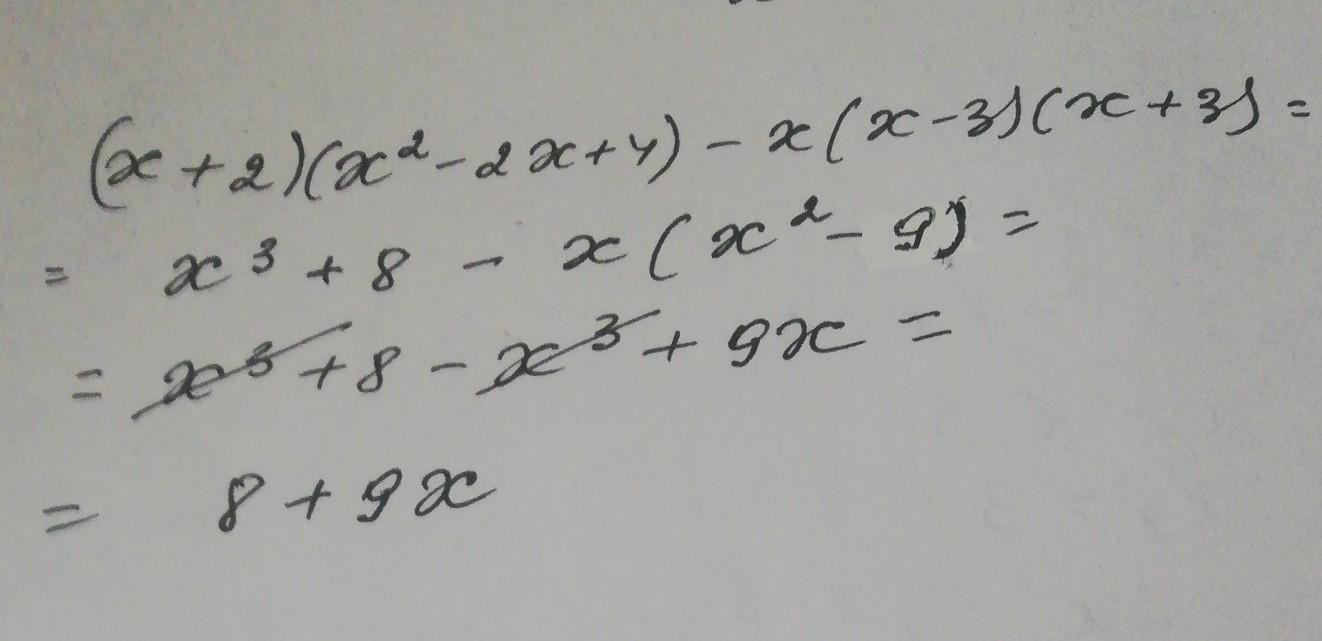 (x+2)(x²-2x+4)-x(x-3)(x+3)=
= x³+8 - x(x²-9)=
= x³+8-x³+9x=
= 8+9x